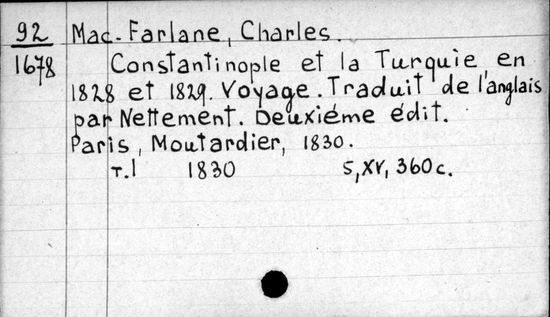 92 Mac-Farlane, Charles.
1678 Constantinople et la Turquie en
1828 et 1829. Voyage. Traduit de l'anglais
par Nettement. Deuxiéme édit.
Paris, Moutardier, 1830.
т.I 1830 5, XV, 360 c.